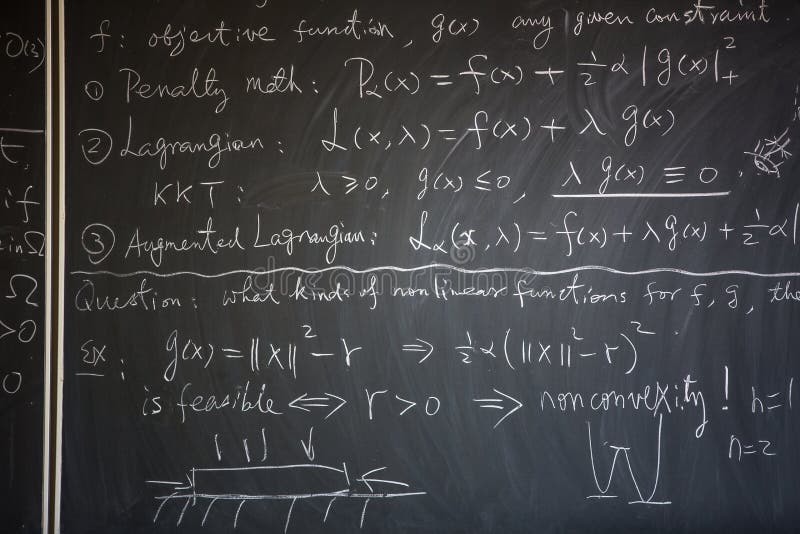 O(3)
t,
if
in Ω
Ω
>0
0
f: objective function, g(x) any given constraint.
① Penalty meth: Pα(x) = f(x) + ½ α |g(x)|₊²
② Lagrangian: L(x, λ) = f(x) + λ g(x)
KKT: λ ≥ 0, g(x) ≤ 0, λ g(x) ≡ 0
③ Augmented Lagrangian: Lα(x, λ) = f(x) + λ g(x) + ½ α |
Question: what kinds of nonlinear functions for f, g, the
Ex: g(x) = ||x||² − r ⇒ ½ α (||x||² − r)².
is feasible ⇔ r > 0 ⇒ nonconvexity! n=1
n=2